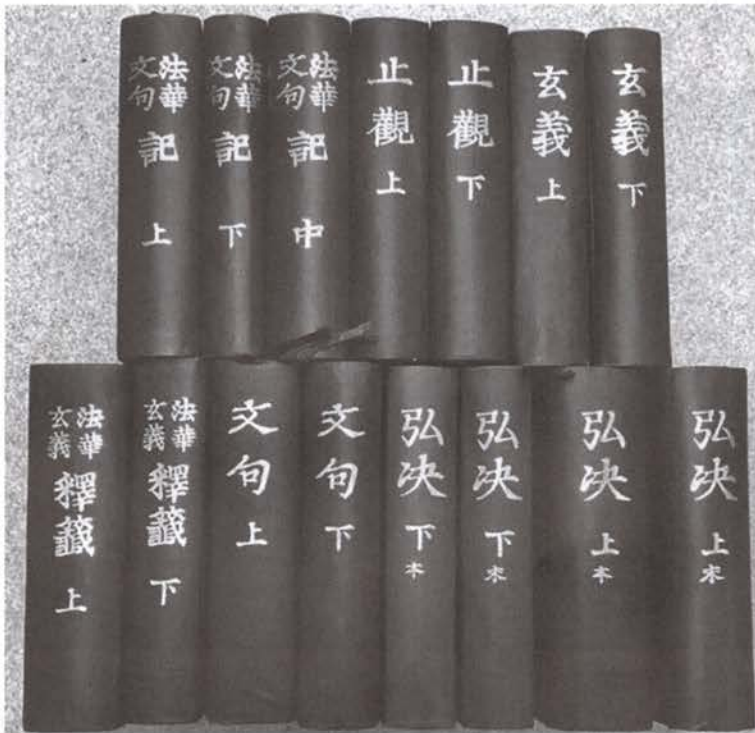 法華
文句
記
上
法華
文句
記
下
法華
文句
記
中
止觀
上
止觀
下
玄義
上
玄義
下
法華
玄義
釋籤
上
法華
玄義
釋籤
下
文句
上
文句
下
弘决
下
本
弘决
下
末
弘决
上
本
弘决
上
末